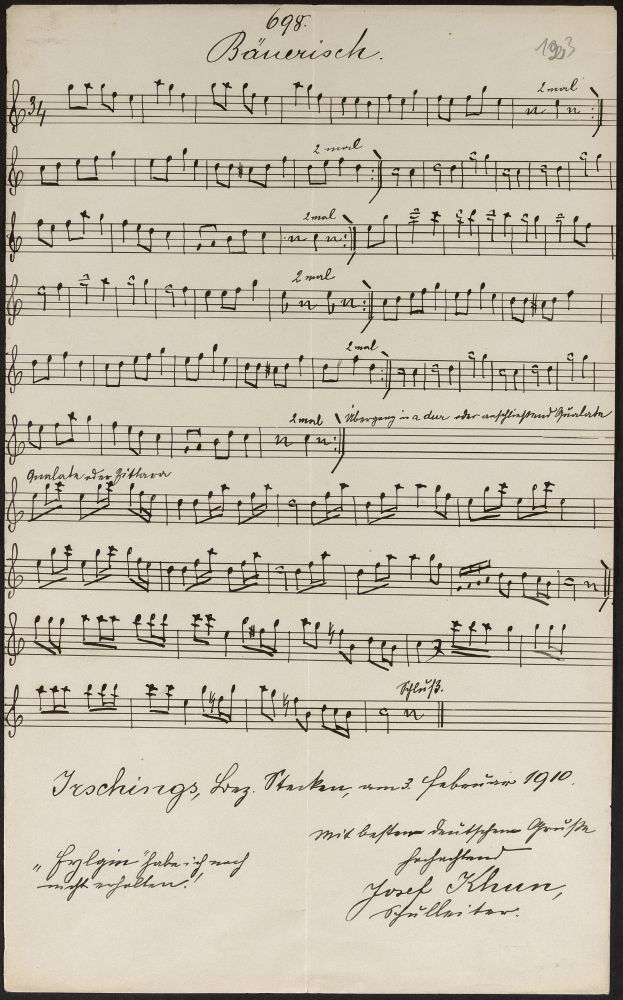 698.
Bäuerisch.
3/4
2 mal
2 mal
2 mal
2 mal
2 mal
2 mal Übergang in a dur oder anschließend Qualate
Qualate oder Zittara
Schluß.
Irschings, Bez. Stecken, am 3. Februar 1910.
Mit bestem deutschem Gruße
hochachtend
Josef Khun,
Schulleiter.
„Fylgia" habe ich noch
nicht erhalten!